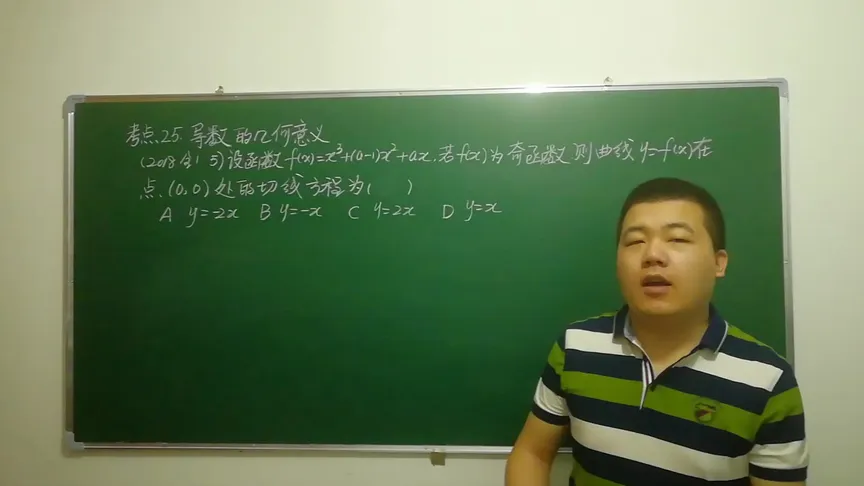 考点25.导数的几何意义
(2018全1 5)设函数f(x)=x³+(a-1)x²+ax.若f(x)为奇函数.则曲线y=f(x)在
点(0,0)处的切线方程为( )
A y=-2x B y=-x C y=2x D y=x